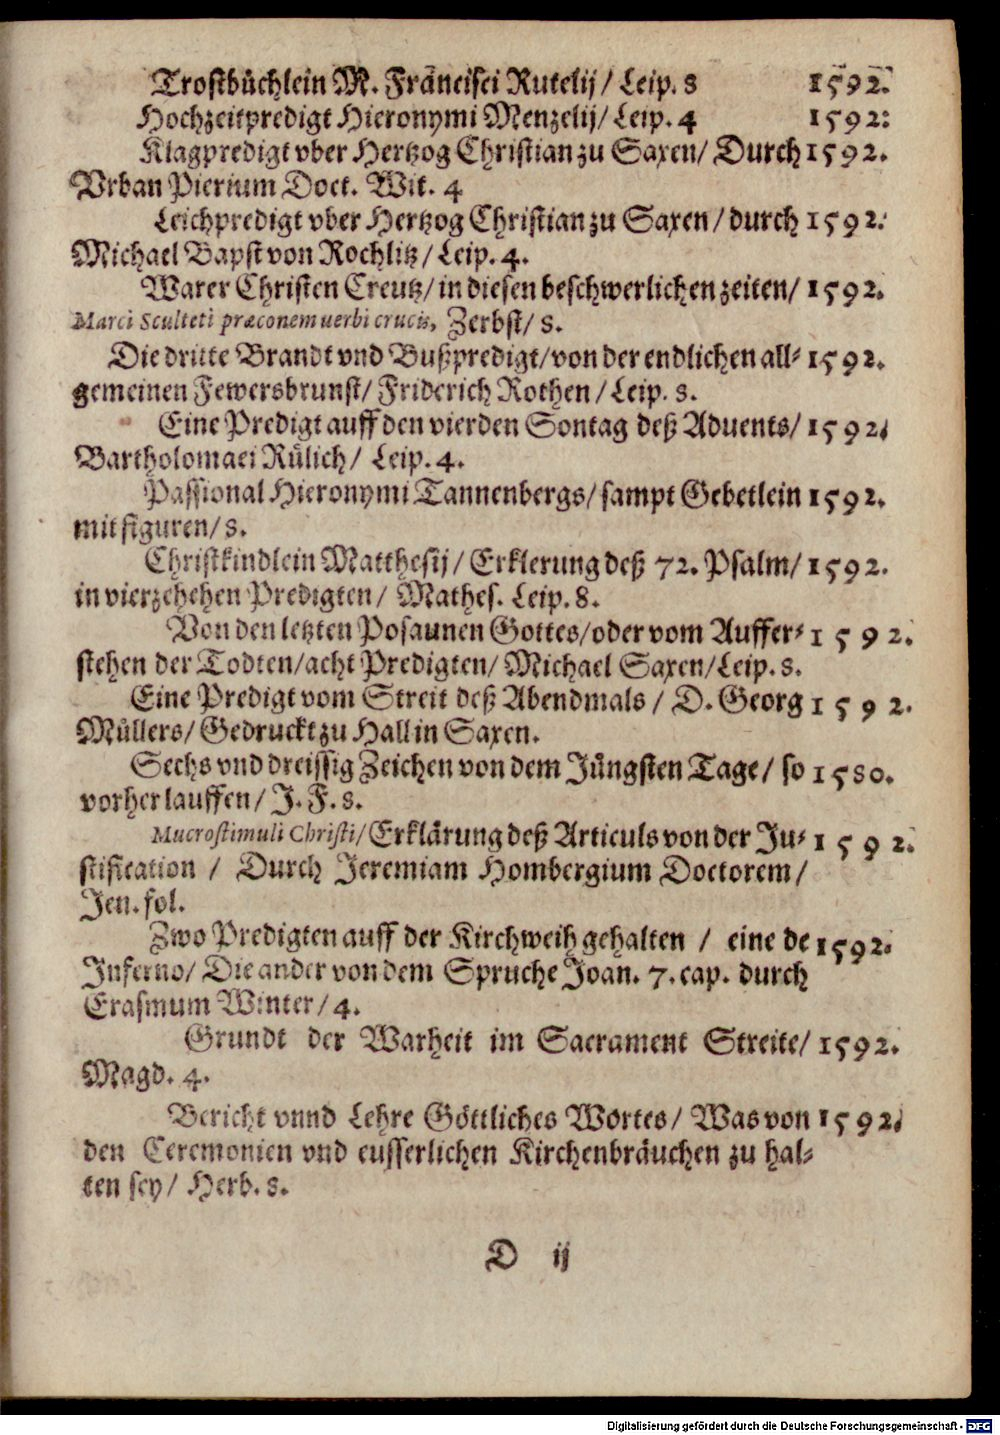 Trostbüchlein M. Francisci Rutelij/ Leip. 8 1592.
Hochzeitpredigt Hieronymi Menzelij/ Leip. 4 1592:
Klagpredigt vber Hertzog Christian zu Saxen/ Durch 1592.
Vrban Pierium Doct. Wit. 4
Leichpredigt vber Hertzog Christian zu Saxen/ durch 1592:
Michael Bapst von Rochlitz/ Leip. 4.
Warer Christen Creutz/ in diesen beschwerlichen zeiten/ 1592.
Marci Sculteti præconem uerbi crucis, Zerbst/ 8.
Die dritte Brandt vnd Bußpredigt/ von der endlichen all- 1592.
gemeinen Fewersbrunst/ Friderich Rothen/ Leip. 8.
Eine Predigt auff den vierden Sontag deß Aduents/ 1592.
Bartholomaei Rülich/ Leip. 4.
Passional Hieronymi Tannenbergs/ sampt Gebetlein 1592.
mit figuren/ 8.
Christkindlein Matthesij/ Erklerung deß 72. Psalm/ 1592.
in vierzehehen Predigten/ Mathes. Leip. 8.
Von den letzten Posaunen Gottes/ oder vom Auffer- 1592.
stehen der Todten/ acht Predigten/ Michael Saxen/ Leip. 8.
Eine Predigt vom Streit deß Abendmals/ D. Georg 1592.
Müllers/ Gedruckt zu Hall in Saxen.
Sechs vnd dreissig Zeichen von dem Jüngsten Tage/ so 1580.
vorher lauffen/ J. F. 8.
Mucrostimuli Christi/ Erklärung deß Articuls von der Ju- 1592.
stification / Durch Jeremiam Hombergium Doctorem/
Jen. fol.
Zwo Predigten auff der Kirchweih gehalten / eine de 1592.
Inferno/ Die ander von dem Spruche Joan. 7. cap. durch
Erasmum Winter/ 4.
Grundt der Warheit im Sacrament Streite/ 1592.
Magd. 4.
Bericht vnnd Lehre Göttliches Wortes/ Was von 1592.
den Ceremonien vnd eusserlichen Kirchenbräuchen zu hal-
ten sey/ Herb. 8.
D ij
Digitalisierung gefördert durch die Deutsche Forschungsgemeinschaft - DFG